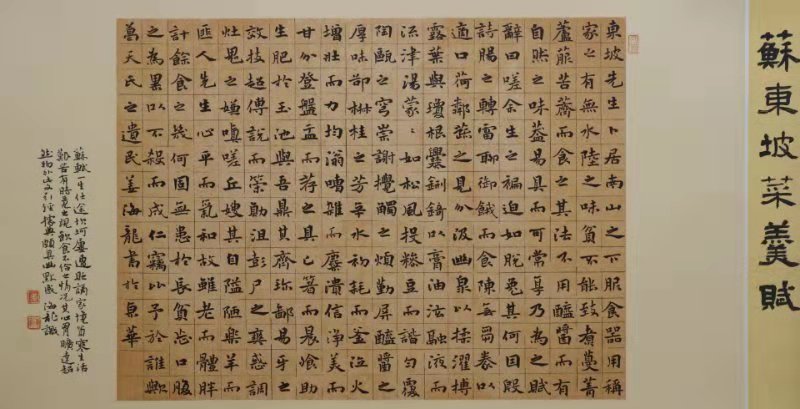 蘇東坡菜羹賦
東坡先生卜居南山之下服食器用稱
家之有無水陸之味貧不能致煮蔓菁
蘆菔苦薺而食之其法不用醯醬而有
自然之味蓋易具而可常享乃為之賦
辭曰嗟余生之褊迫如脫兔其何因殷
詩腸之轉雷聊御餓而食陳無芻豢以
適口荷鄰蔬之見分汲幽泉以揉濯搏
露葉與瓊根爨鉶錡以膏油泫融液而
流津湯濛濛如松風投糝豆而諧勻覆
陶甌之穹崇謝攪觸之煩勤屏醯醬之
厚味卻椒桂之芳辛水初耗而釜泣火
增壯而力均滃嘈雜而麋潰信淨美而
甘分登盤盂而薦之具匕箸而晨飧助
生肥於玉池與吾鼎其齊珍鄙易牙之
效技超傅說而策勳沮彭尸之爽惑調
灶鬼之嫌嗔嗟丘嫂其自隘陋樂羊而
匪人先生心平而氣和故雖老而體胖
計餘食之幾何固無患於長貧忘口腹
之為累以不殺而成仁竊比予於誰歟
葛天氏之遺民姜海龍書於京華
蘇軾一生仕途坎坷屢遭貶謫家境貧寒生活
艱苦有時竟出現飲食不給之情況其心胃曠達超
然物外此文引經據典頗具幽默感 海龍識